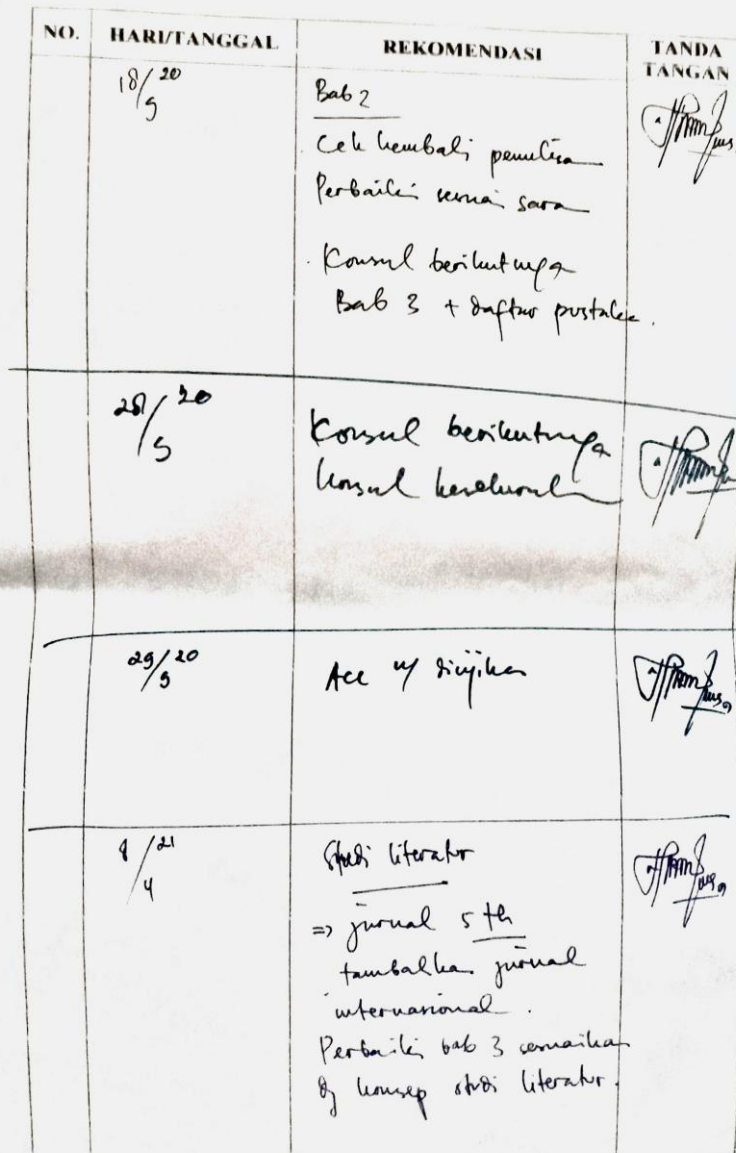 NO. HARI/TANGGAL REKOMENDASI TANDA TANGAN
18/9 20
Bab 2
Cek kembali penulisan
Perbaiki sesuai saran
Konsul berikutnya
Bab 3 + daftar pustaka.
28/9 20
Konsul berikutnya
konsul keseluruhan
29/9 20
Acc u/ diujikan
8/4 21
Studi literatur
=> jurnal 5 th
tambahkan jurnal
internasional.
Perbaiki bab 3 sesuaikan
dg konsep studi literatur.